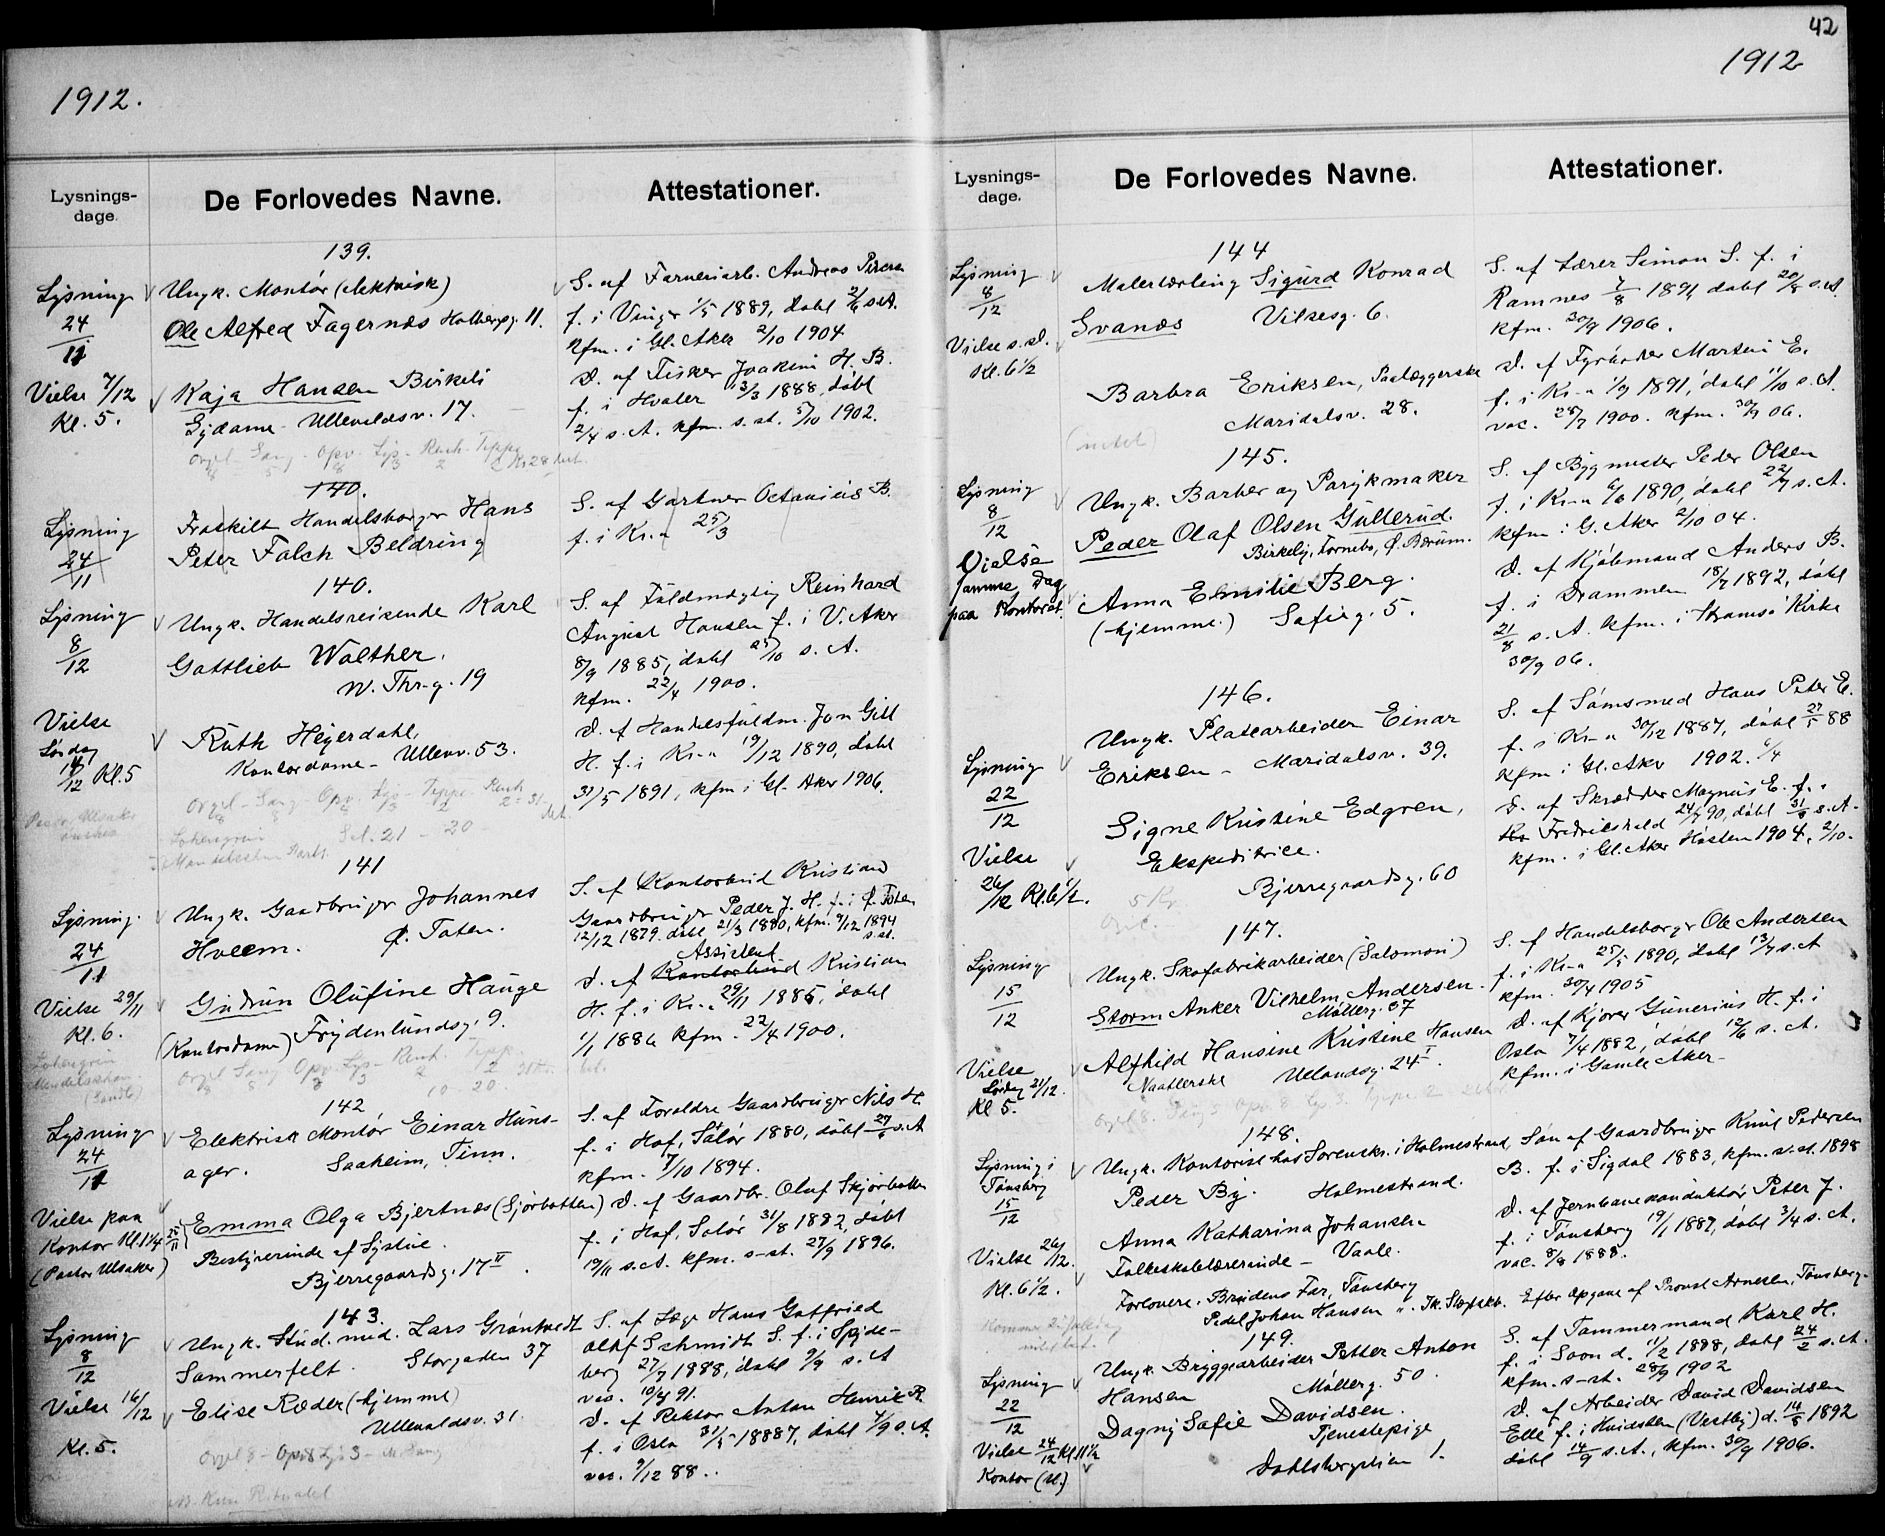 1912.
Lysnings-
dage.
De Forlovedes Navne.
Attestationer.
139.
Lysning
24
11
Vielse 7/12
Kl. 5.
Ungk. Montør (elektrisk)
Ole Alfred Fagernæs Holbergsg. 11.
Kaja Hansen Birkeli
Sydame - Ullevaldsv. 17.
S. af Farveriarb. Andreas
f. i Vinger 1/5 1889, døbt 2/6 s.A.
Kfm. i Gl. Aker 2/10 1904
D. af Fisker Joakim H. B.
f. i Hvaler 13/3 1888, døbt
2/4 s. A. kfm. s. st. 5/10 1902.
140.
Lysning
24
11
Fraskilt Handelsborger Hans
Peter Falch Beldring
S. af Gartner Octavius B.
f. i Kr.a 25/3
140.
Lysning
8
12
Vielse
Lørdag
14
12 Kl. 5
Ungk. Handelsreisende Karl
Gottlieb Walther.
W. Thr-g. 19
Ruth Heyerdahl,
Kontordame - Ullevv. 53.
S. af Fuldmægtig Reinhard
August Hansen f. i V. Aker
8/9 1885, døbt 25/10 s. A.
kfm. 22/4 1900.
D. af Handelsfuldm. Jon Gill
H. f. i Kr-a 19/12 1890, døbt
31/5 1891, kfm i Gl. Aker 1906.
141
Lysning
24
11
Vielse 29/11
Kl. 6.
Ungk. Gaardbruger Johannes
Hveem. Ø. Toten.
Gudrun Olufine Hauge
(Kontordame) Frydenlundsg. 9.
S. af Kontorbud Kristian
Gaardbruger Peder J. H. f. i Ø. Toten
12/12 1879 døbt 21/3 1880, kfm. 9/12 1894
s. st.
Assistent
D. af Kontorbud Kristian
H. f. i Kr.a 29/11 1885, døbt
1/1 1886 kfm. 22/4 1900.
142
Lysning
24
11
Vielse paa
Kontor Kl. 1 1/4 25/11
(Pastor Ulsaker)
Elektrisk Montør Einar Huns-
ager. Saaheim, Tinn.
Emma Olga Bjertnæs (Sjørbotten)
Bestyrerinde af Systue.
Bjerregaardsg. 17 II.
S. af Forældre Gaardbruger Nils H.
f. i Hof, Solør 1880, døbt 27/6 s.A
kfm. 7/10 1894.
D. af Gaardbr. Oluf Skjørbotten
f. i Hof, Solør 31/8 1882, døbt
19/11 s.A. kfm. s-st. 27/9 1896.
143.
Lysning
8
12
Vielse 16/12
Kl. 5.
Ungk. Stud. med. Lars Grøntvedt
Sommerfelt. Storgaden 37
Elise Ræder (hjemme)
Ullevaldsv. 31.
S. af Læge Hans Gotfried
Schmidt S. f. i Spyde-
berg 27/7 1888, døbt 9/9 s. A
vac. 10/4 91.
D. af Rektor Anton Henrik R.
f. i Oslo 31/5 18887, døbt 7/9 s. A.
vac. 9/12 88.
42
1912
Lysnings-
dage.
De Forlovedes Navne.
Attestationer.
144
Lysning
8
12
Vielse s. D.
Kl. 6 1/2
Malerlærling Sigurd Konrad
Svanæs Vibesg. 6.
Barbra Eriksen, Paalæggerske
Maridalsv. 28.
S. af Lærer Simon S. f. i
Ramnes 7/8 1891, døbt 20/8 s.A.
kfm. 30/9 1906.
D. af Fyrbøder Martin E.
f. i Kr-a 1/9 1891, døbt 11/10 s. A.
vac. 28/7 1900. kfm. 30/9 06.
145.
Lysning
8
12
Vielse
samme Dag
paa Kontoret.
Ungk. Barber og Parykmaker
Peder Olaf Olsen Gullerud.
Birkely, Fornebo, Ø. Bærum.
Anna Emilie Berg.
(hjemme.) Sofieg. 5.
S. af Bygmester Peder Olsen
f. i Kr-a 6/6 1890, døbt 22/7 s. A.
kfm i G. Aker 2/10 04.
D. af Kjøbmand Anders B.
f. i Drammen 18/7 1892, døbt
21
8 s. A. kfm. i Strømsø Kirke
30/9 06.
146.
Lysning
22
12
Vielse
26/12 Kl. 6 1/2.
Ungk. Platearbeider Einar
Eriksen - Maridalsv. 39.
Signe Kristine Edgren,
Ekspeditrice.
Bjerregaardsg. 60
S. af Sømsmed Hans Peter E.
f. i Kr-a 30/12 1887, døbt 27/5 88
kfm i Gl. Aker 1902. 6/4
D. af Skrædder Magnus E. f. i
Fredrikshald 24/7 90, døbt 31/8 s. A.
kfm. i Gl. Aker Høsten 1904. 2/10.
147.
Lysning
15
12
Vielse
Lørdag 21/12.
Kl 5.
Ungk. Skofabrikarbeider (Salomon)
Storm Anker Vilhelm Andersen.
Møllerg. 37
Alfhild Hansine Kristine Hansen
Naatlerske Uelandsg. 24 I
S. af Handelsborger Ole Andersen
f. i Kr-a 25/5 1890, døbt 13/7 s. A
kfm. 30/4 1905
D. af Kjører Gunerius H. f. i
Oslo 7/4 1882, døbt 12/6 s. A.
kfm. i Gamle Aker-
148.
Lysning i
Tønsberg
15
12
Vielse 26/12.
Kl. 6 1/2.
Ungk. Kontorist hos Sorenskr. i Holmestrand
Peder By. Holmestrand.
Anna Katharina Johansen
Folkeskolelærerinde - Vaale.
Forlovere. Brudens Far, Tønsberg
Pedel Johan Hansen
Søn af Gaardbruger Knut Pedersen
B. f. i Sigdal 1883, kfm. s. st. 1898
D. af Jernbanekonduktør Peter J.
f. i Tønsberg 19/1 1887, døbt 3/4 s. A.
vac. 8/8 1888.
Efter Opgave af Provst Arnesen, Tønsberg.
149.
Lysning
22
12
Vielse 24/12 Kl. 11 1/2
Kontor (U.)
Ungk. Bryggearbeider Petter Anton
Hansen Møllerg. 50.
Dagny Sofie Davidsen.
Tjenestepige
Dahlsbergstien 1.
S. af Tømmermand Karl H.
f. i Soon d. 11/2 1888, døbt 24/2 s. A.
kfm. s-st. 28/9 1902
D. af Arbeider David Davidsen
Elle f. i Hvidsten (Vestby) d. 14/8 1892
døbt 14/9 s. A., kfm. 30/9 1906.